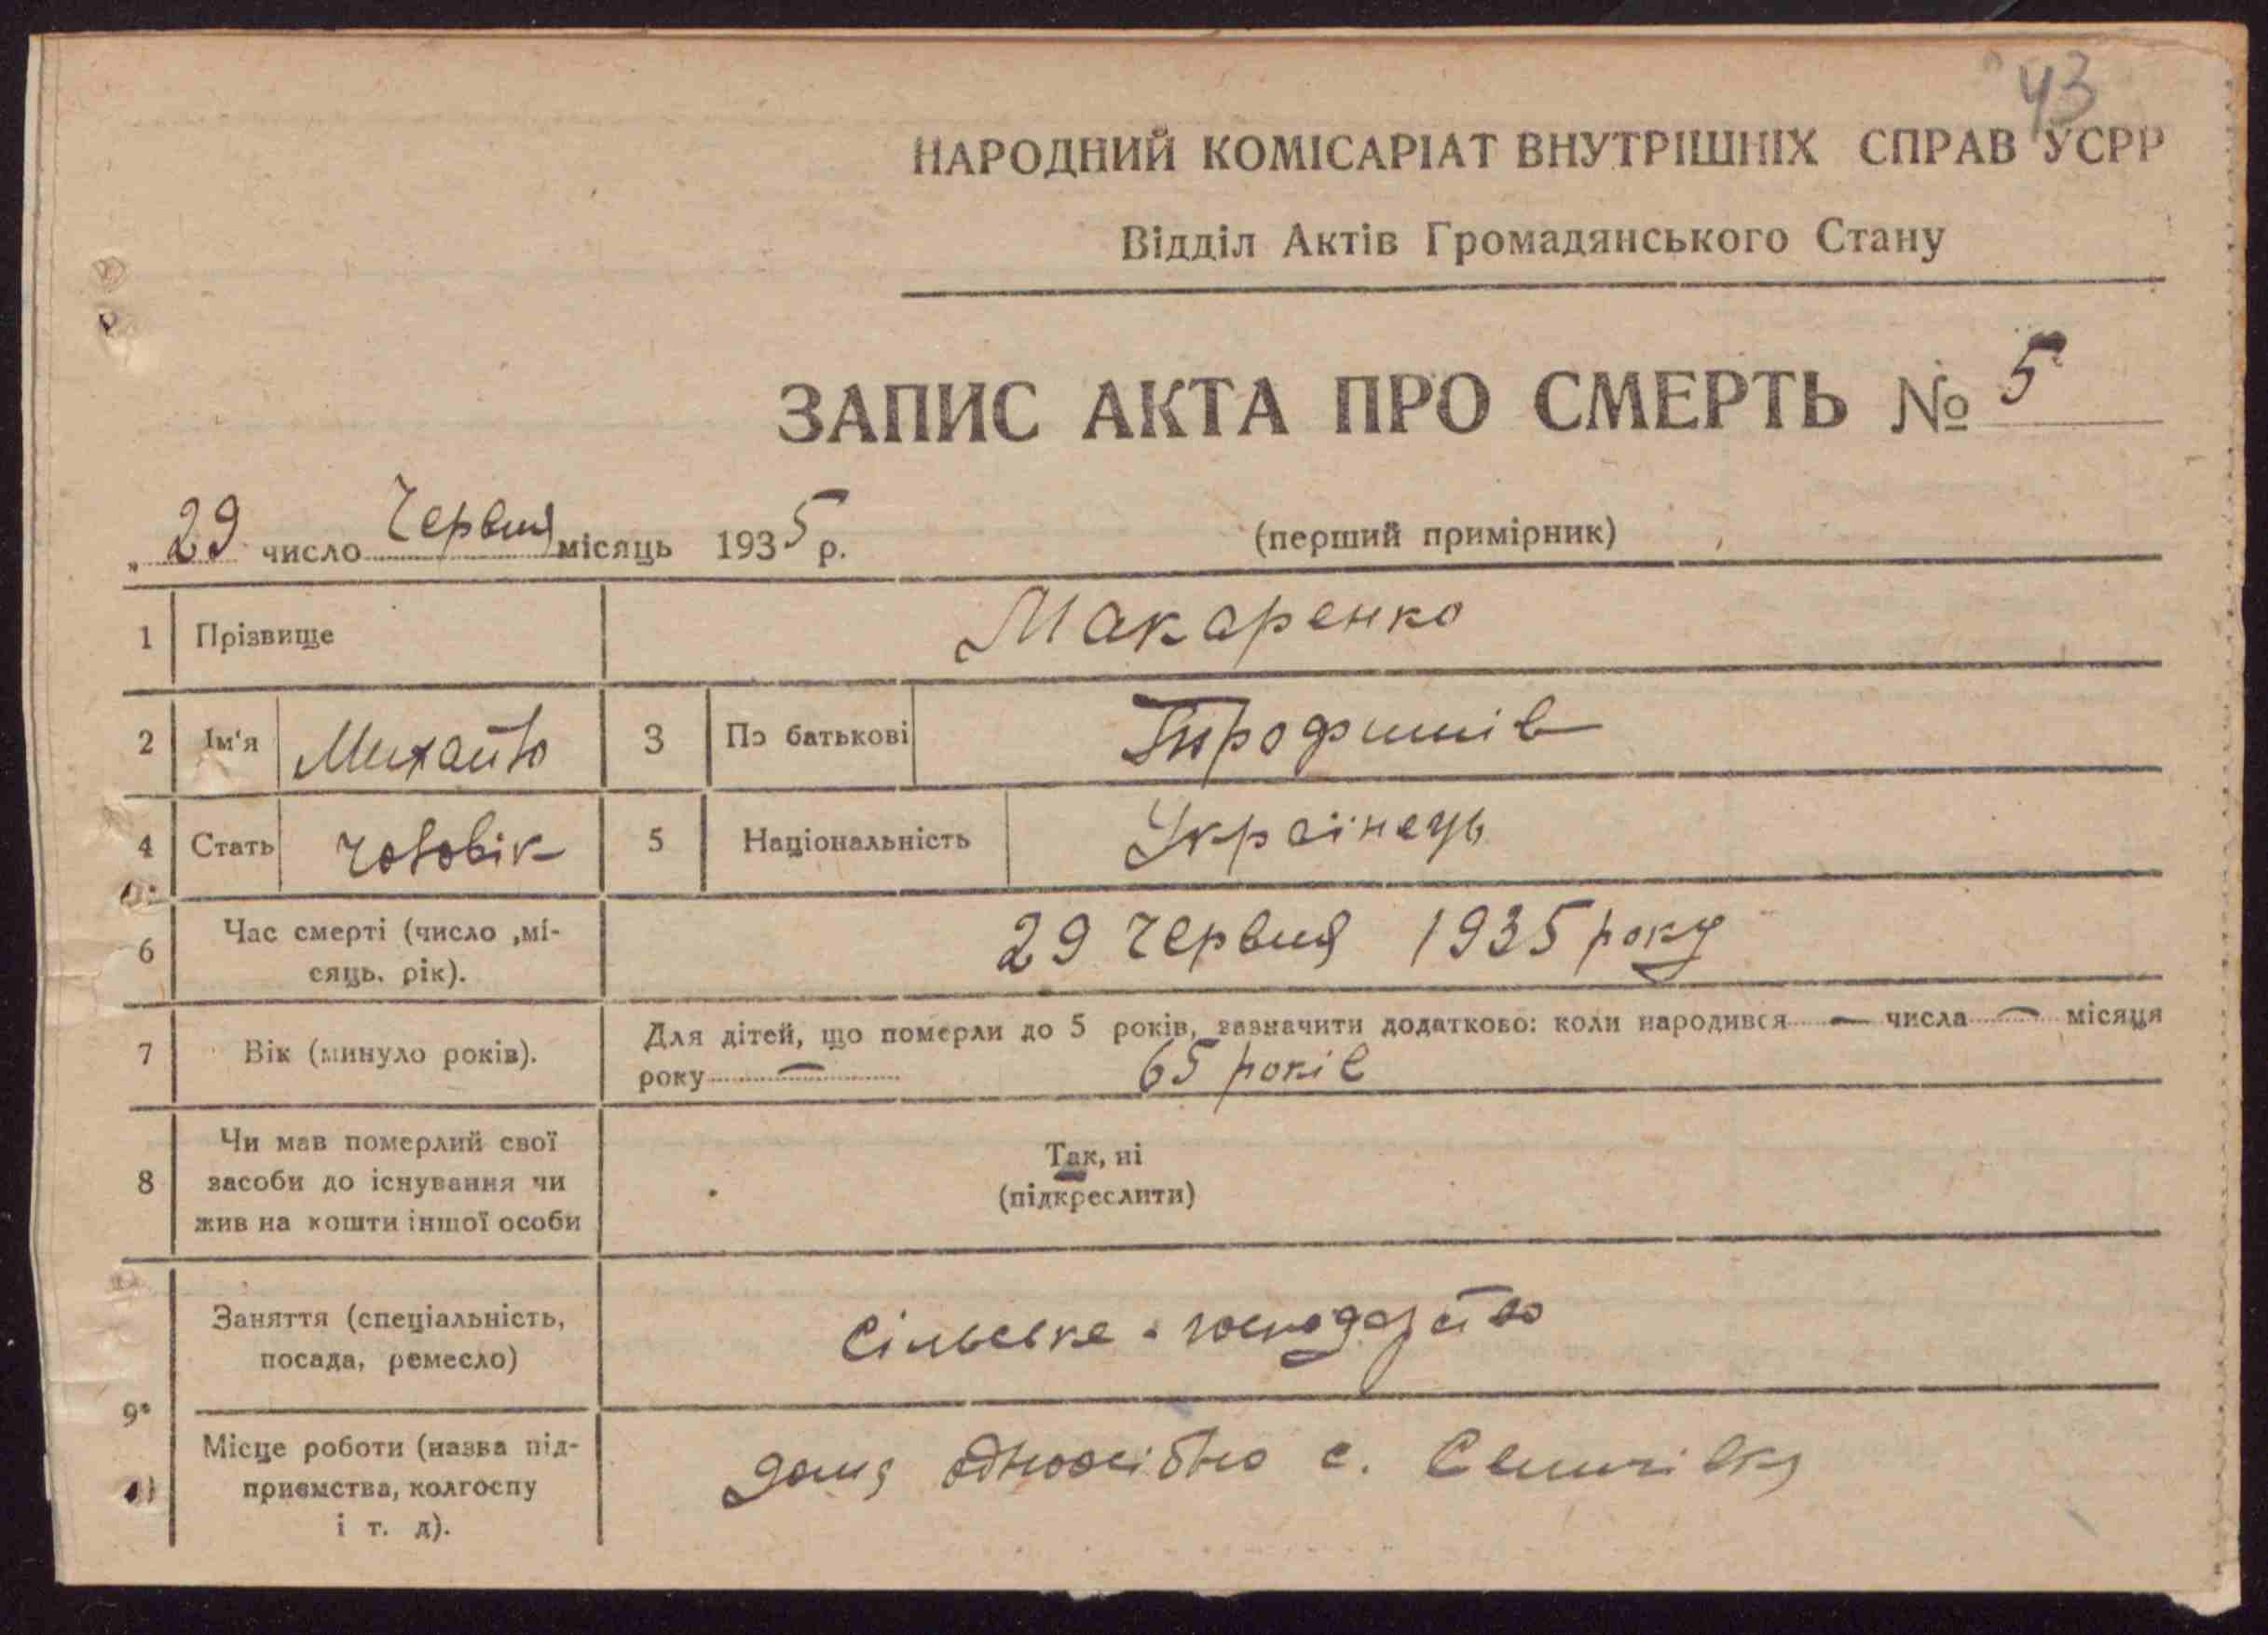 43
НАРОДНИЙ КОМІСАРІАТ ВНУТРІШНІХ СПРАВ УСРР
Відділ Актів Громадянського Стану
ЗАПИС АКТА ПРО СМЕРТЬ № 5
„ 29 число Червня місяць 1935 р. (перший примірник)
1 Прізвище Макаренко
2 Ім'я Михайло 3 По батькові Трофимів
4 Стать чоловік 5 Національність Українець
6 Час смерті (число ,мі-
сяць. рік). 29 червня 1935 року
7 Вік (минуло років). Для дітей, що померли до 5 років, зазначити додатково: коли народився — числа — місяця
року — 65 років
8 Чи мав померлий свої
засоби до існування чи
жив на кошти іншої особи
Так, ні
(підкреслити)
9 Заняття (спеціальність,
посада, ремесло) Сільське - господарство
Місце роботи (назва під-
приємства, колгоспу
і т. д). дома одноосібно с.